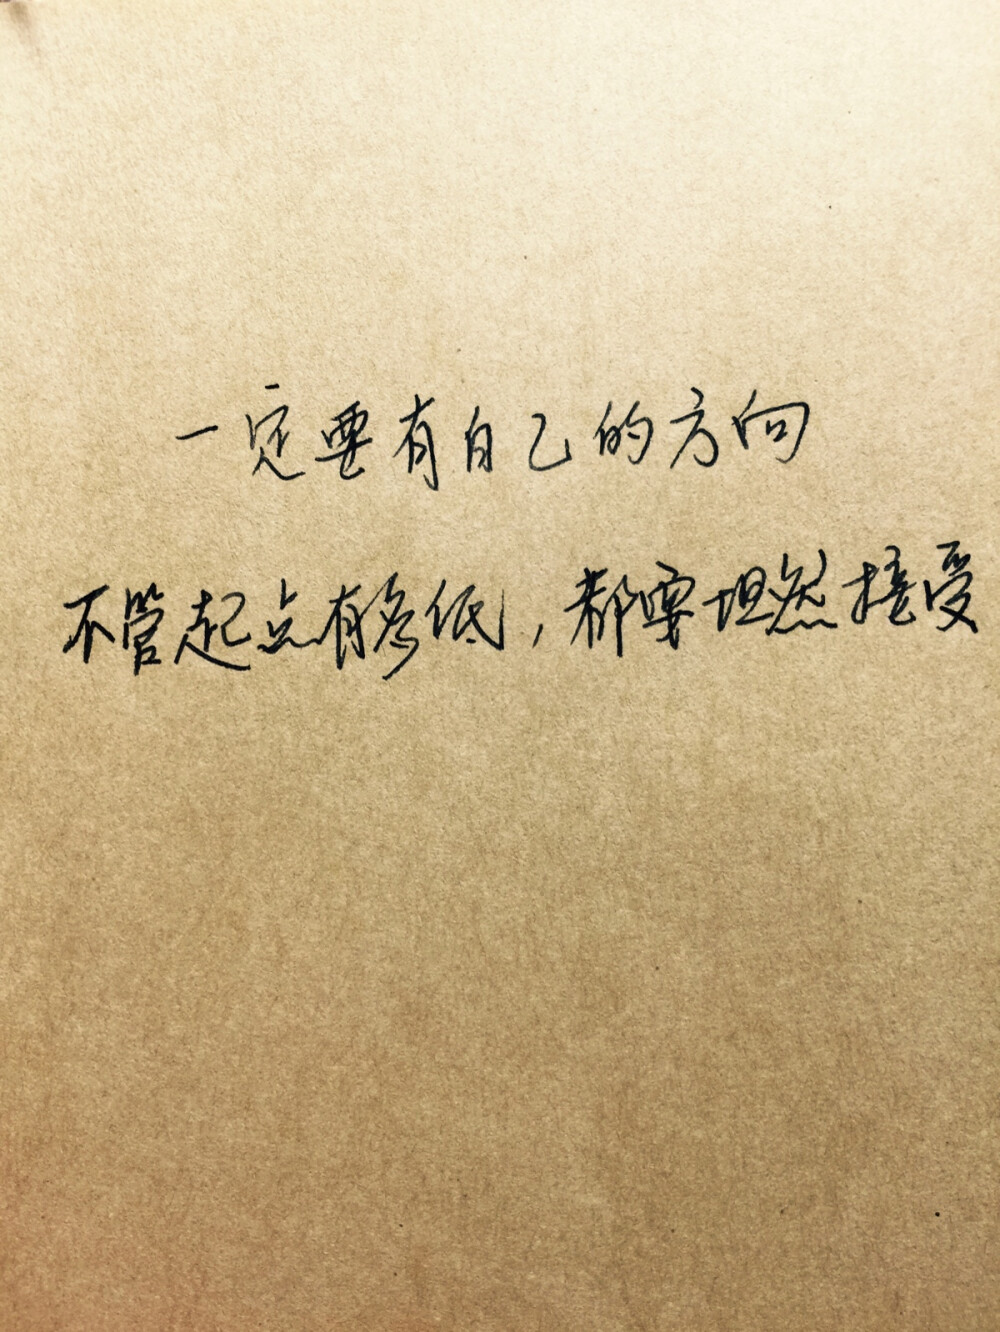 一定要有自己的方向
不管起点有多低，都要坦然接受